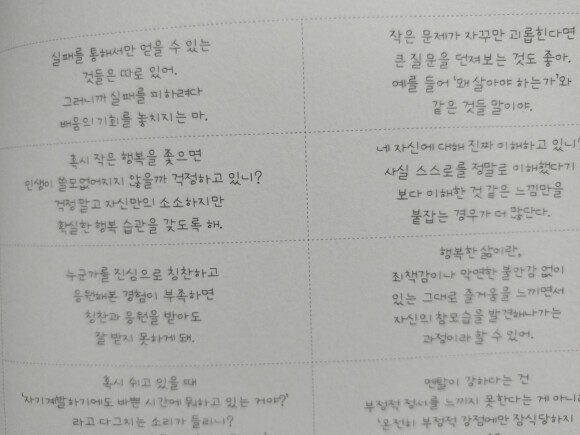 실패를 통해서만 얻을 수 있는
것들은 따로 있어.
그러니까 실패를 피하려다
배움의 기회를 놓치지는 마.
작은 문제가 자꾸만 괴롭힌다면
큰 질문을 던져보는 것도 좋아.
예를 들어 '왜 살아야 하는가'와
같은 것들 말이야.
혹시 작은 행복을 좇으면
인생이 쓸모없어지지 않을까 걱정하고 있니?
걱정말고 자신만의 소소하지만
확실한 행복 습관을 갖도록 해.
네 자신에 대해 진짜 이해하고 있니?
사실 스스로를 정말로 이해했다기
보다 이해한 것 같은 느낌만을
붙잡는 경우가 더 많단다.
누군가를 진심으로 칭찬하고
응원해본 경험이 부족하면
칭찬과 응원을 받아도
잘 받지 못하게 돼.
행복한 삶이란,
죄책감이나 막연한 불안감 없이
있는 그대로 즐거움을 느끼면서
자신의 참모습을 발견해나가는
과정이라 할 수 있어.
혹시 쉬고 있을 때
'자기계발하기에도 바쁜 시간에 뭐하고 있는 거야?'
라고 다그치는 소리가 들리니?
멘탈이 강하다는 건
부정적 정서를 느끼지 못한다는 게 아니라
'온전히 부정적 감정에만 잠식당하지